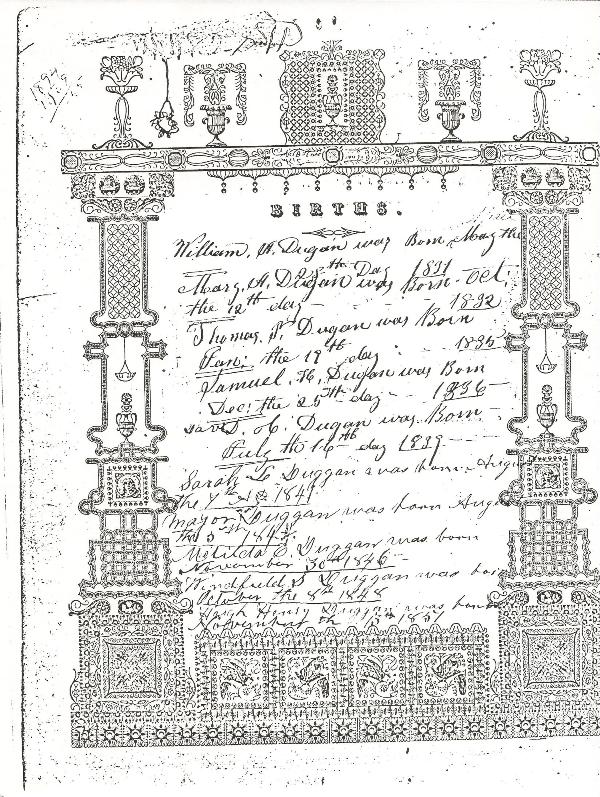 BIRTHS.
William, A. Dugan was Born May the
28th Day 1831
Mary, A. Dugan was Born Oct.
the 12th day 1832
Thomas, S. Dugan was Born
Jan; the 19th day 1835
Samuel, H. Dugan was Born
Dec; the 25th day 1836
Dugan was Born
July the 16th day 1839
Sarah L Duggan was born
the 7th AD 1841
mayor Duggan was born
the 5th
Matilda C. Duggan was born
November 30th 1846
Windfield S Duggan was
October the 8th 1848
Hugh Henry Duggan was born
November th 15th 1851